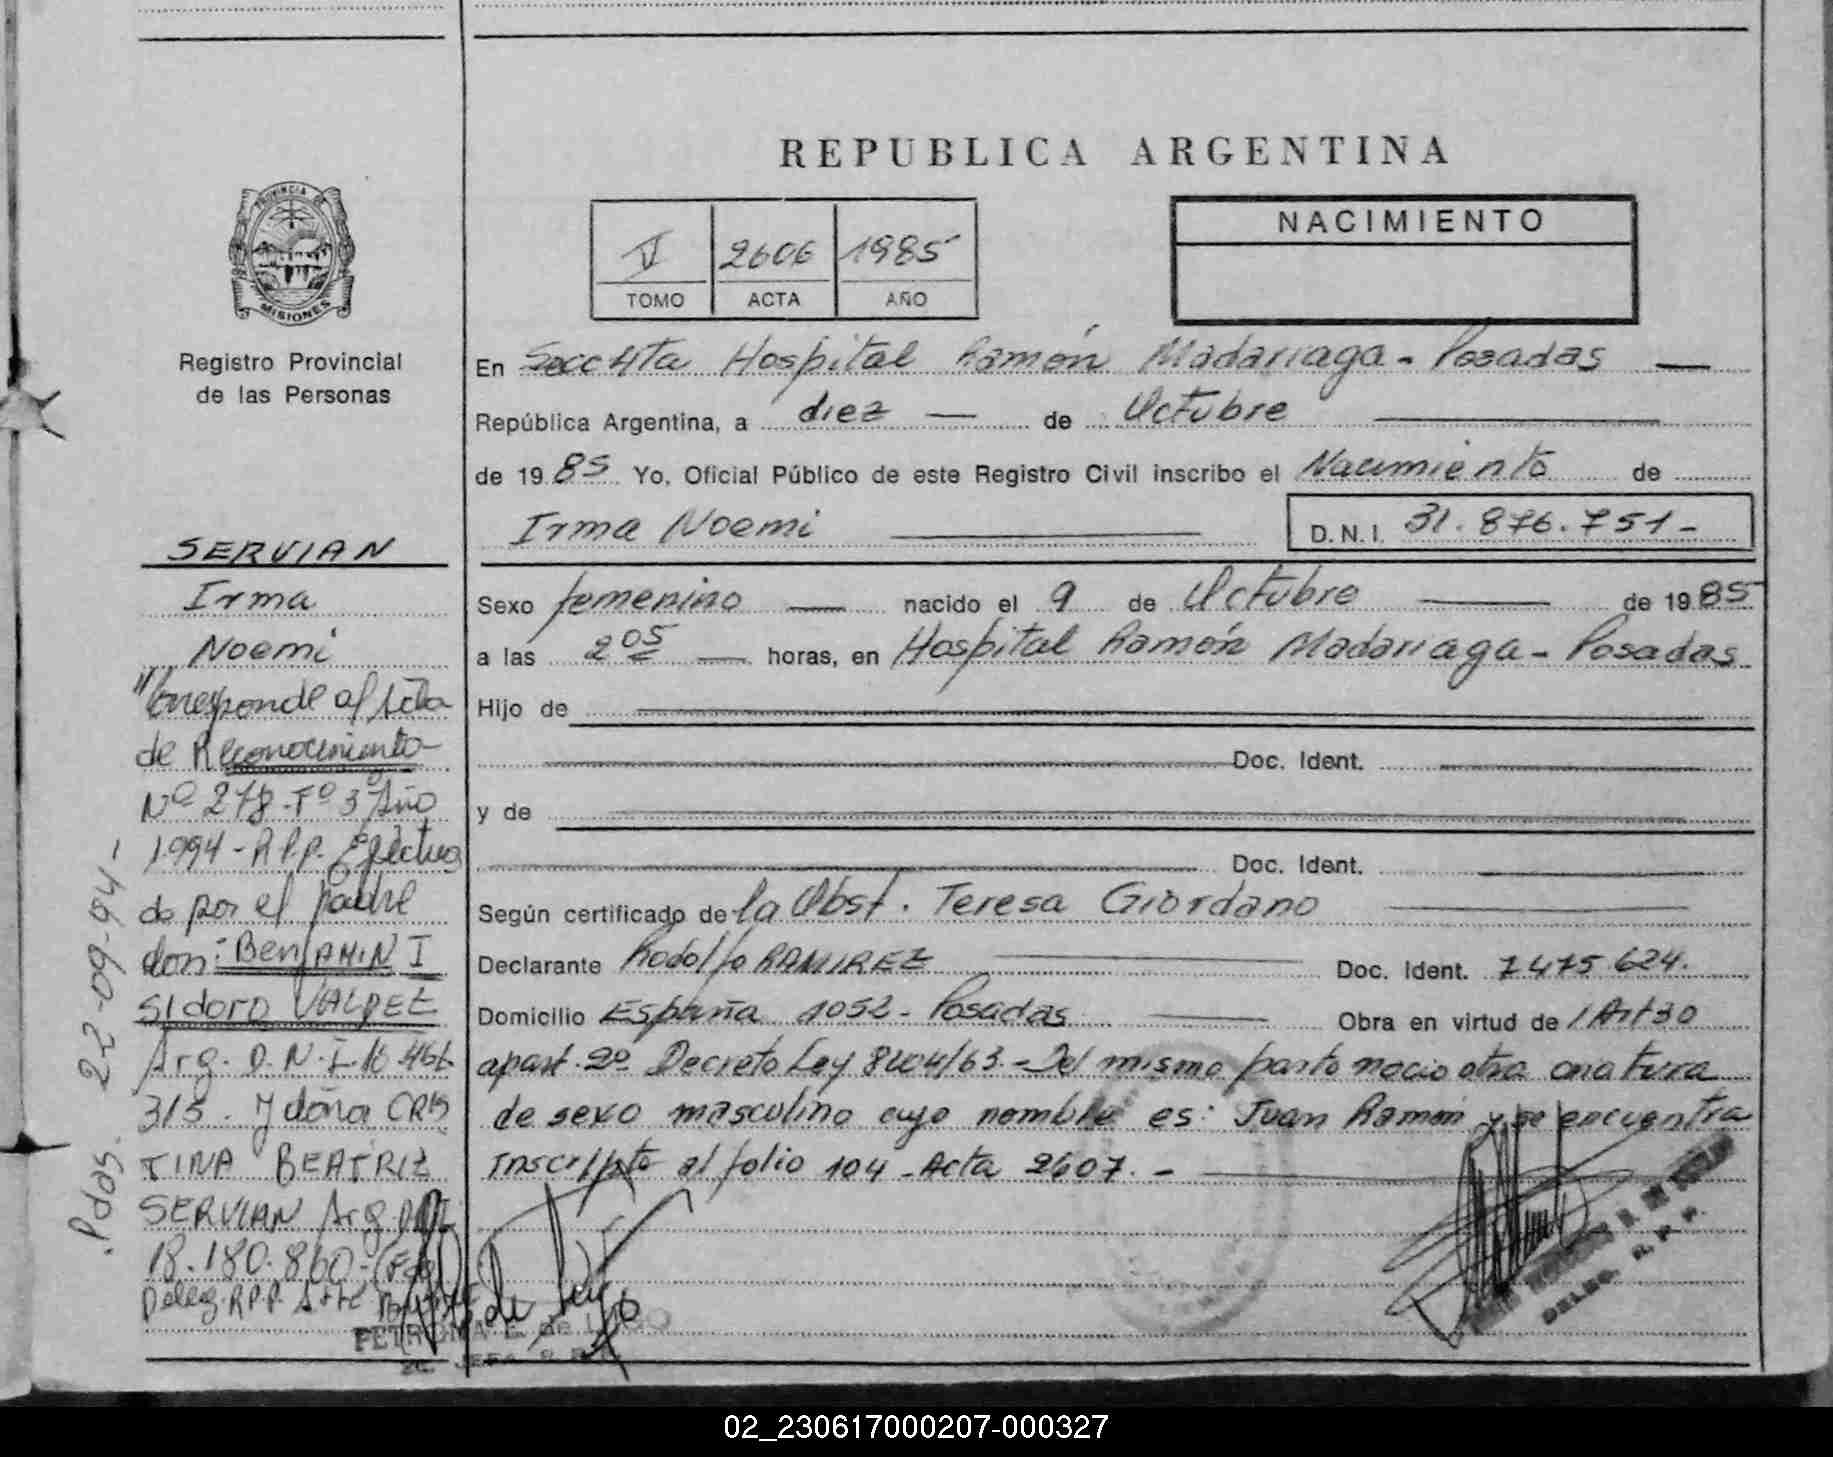 REPUBLICA ARGENTINA
PROVINCIA DE
MISIONES
Registro Provincial
de las Personas
V 2606 1985
TOMO ACTA AÑO
NACIMIENTO
En Secc 4ta Hospital Ramón Madariaga - Posadas
República Argentina, a diez de Octubre
de 1985 Yo, Oficial Público de este Registro Civil inscribo el Nacimiento de
Irma Noemi D.N.I. 31.876.751-
Sexo femenino nacido el 9 de Octubre de 1985
a las 2 05 horas, en Hospital Ramón Madariaga - Posadas
Hijo de
Doc. Ident.
y de
Doc. Ident.
Según certificado de la Obst. Teresa Giordano
Declarante Rodolfo RAMIREZ Doc. Ident. 7475624.
Domicilio España 1052 - Posadas Obra en virtud de / Art 30
apart. 2º Decreto Ley 8204/63.- Del mismo parto nacio otra criatura
de sexo masculino cuyo nombre es: Juan Ramón y se encuentra
inscripto al folio 104 - Acta 2607. -
SERVIAN
Irma
Noemi
"Corresponde al Acta
de Reconocimiento
Nº 278 - Tº 3 Año
1994 - R.P.P. Efectua
do por el padre
don: BenJAMIN I
SIdoro VALDEZ
Arg. D.N.I. 16.461.
315. y doña CRIS
TINA BEATRIZ
SERVIAN Arg. DNI
18.180.860-
Deleg. R.P.P.
Pdas. 22-09-94-
DELEG. R. P. P.
02_230617000207-000327